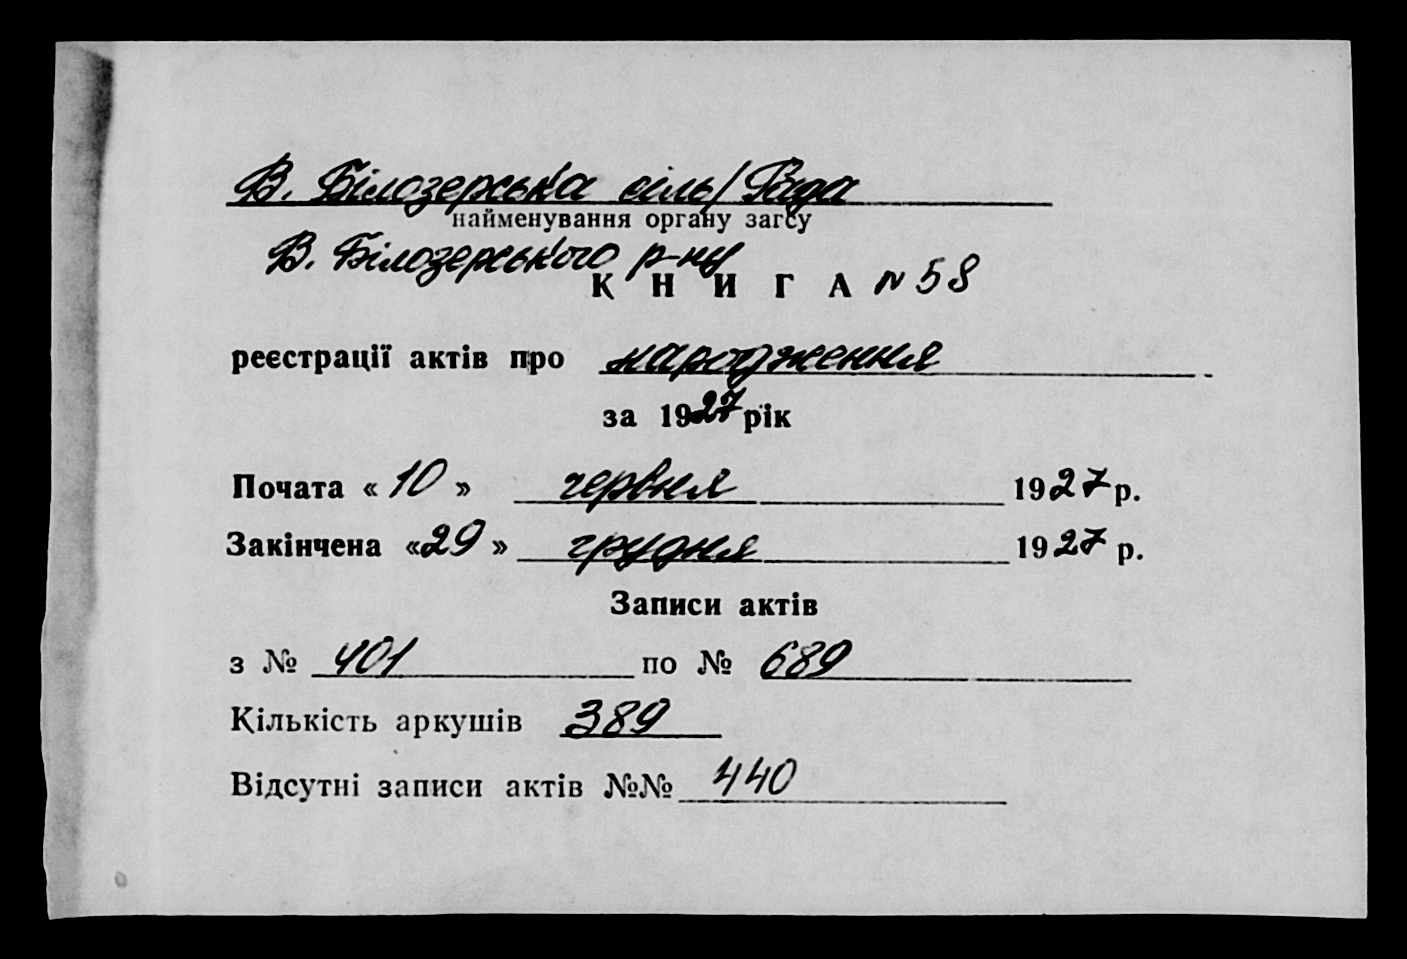 В. Білозерська сіль/Рада
найменування органу загсу
В. Білозерського р-ну
КНИГА № 58
реєстрації актів про народження
за 1927 рік
Почата «10» червня 1927 р.
Закінчена «29» грудня 1927 р.
Записи актів
з № 401 по № 689
Кількість аркушів 389
Відсутні записи актів №№ 440